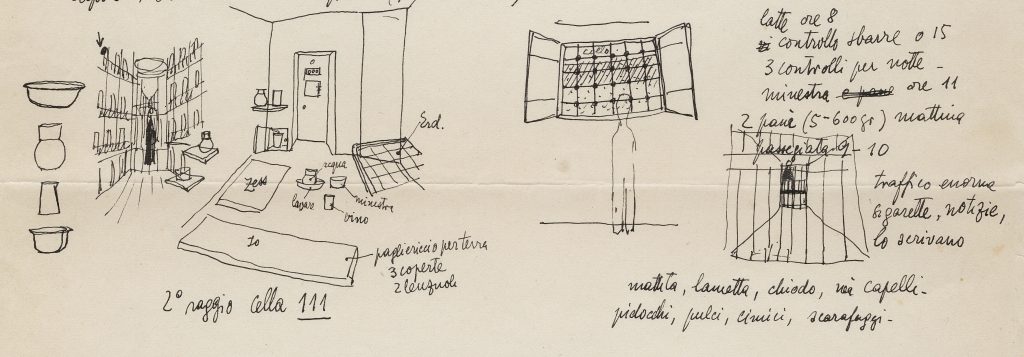 latte ore 8
controllo sbarre o 15
3 controlli per notte -
minestra e pane ore 11
2 pani (5-600gr) mattina
passeggiata 9-10
cielo
Srd.
acqua
Zess
lavare
minestra
vino
traffico enorme
sigarette, notizie,
lo scrivano
Io
pagliericcio per terra
3 coperte
2 lenzuoli
2° raggio cella 111
mattita, lametta, chiodo, via capelli -
pidocchi, pulci, cimici, scarafaggi -